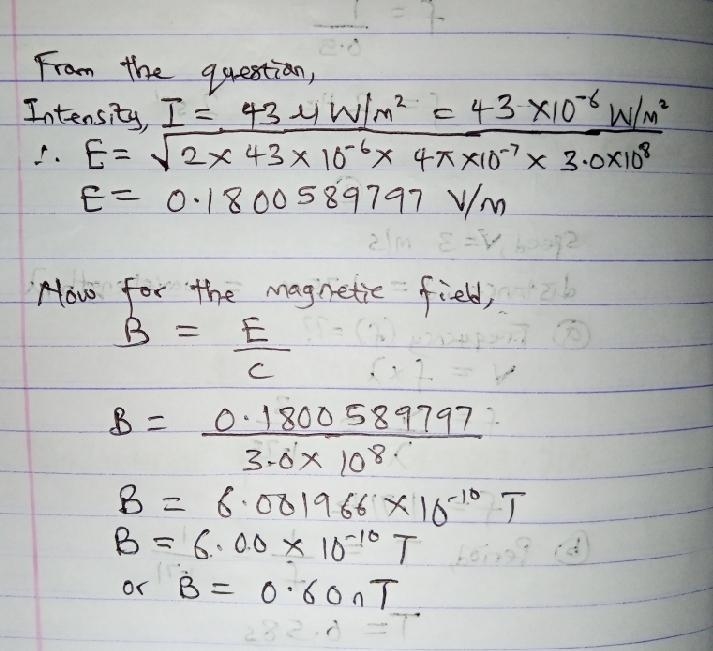 From the question,
Intensity, I = 43 μW/m² = 43×10⁻⁶ W/m²
∴ E = √2×43×10⁻⁶×4π×10⁻⁷×3.0×10⁸
E = 0.1800589797 V/m
Now for the magnetic field,
B = E/C
B = 0.1800589797/3.0×10⁸
B = 6.001966×10⁻¹⁰ T
B = 6.00×10⁻¹⁰ T
or B = 0.60nT